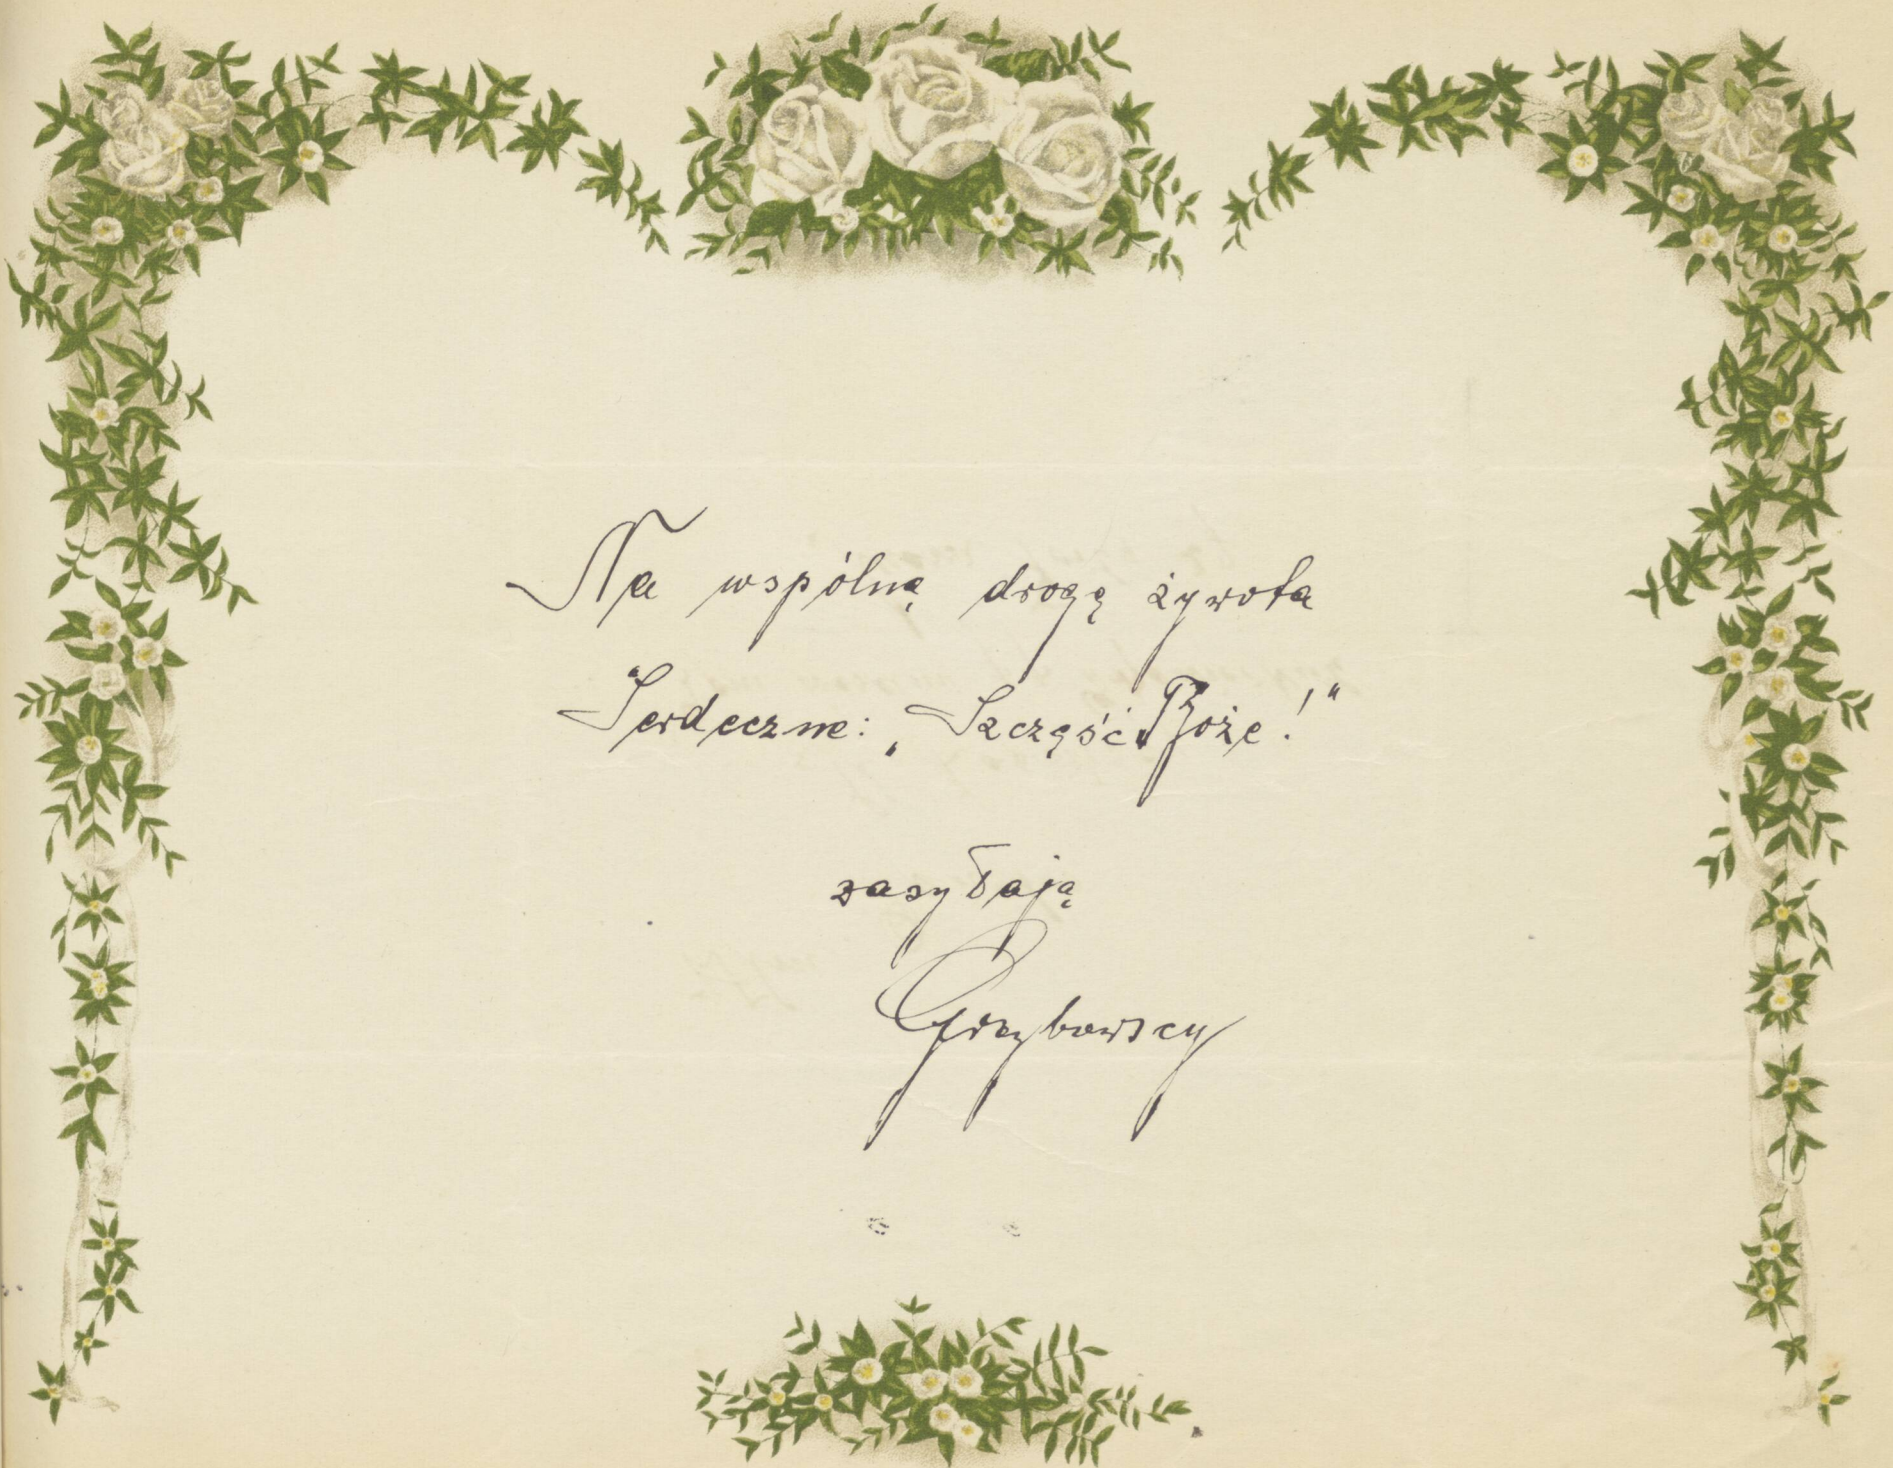 Na wspólną drogę żywota
Serdeczne: „Szczęść Boże!"
zasyłają
Grzybowscy